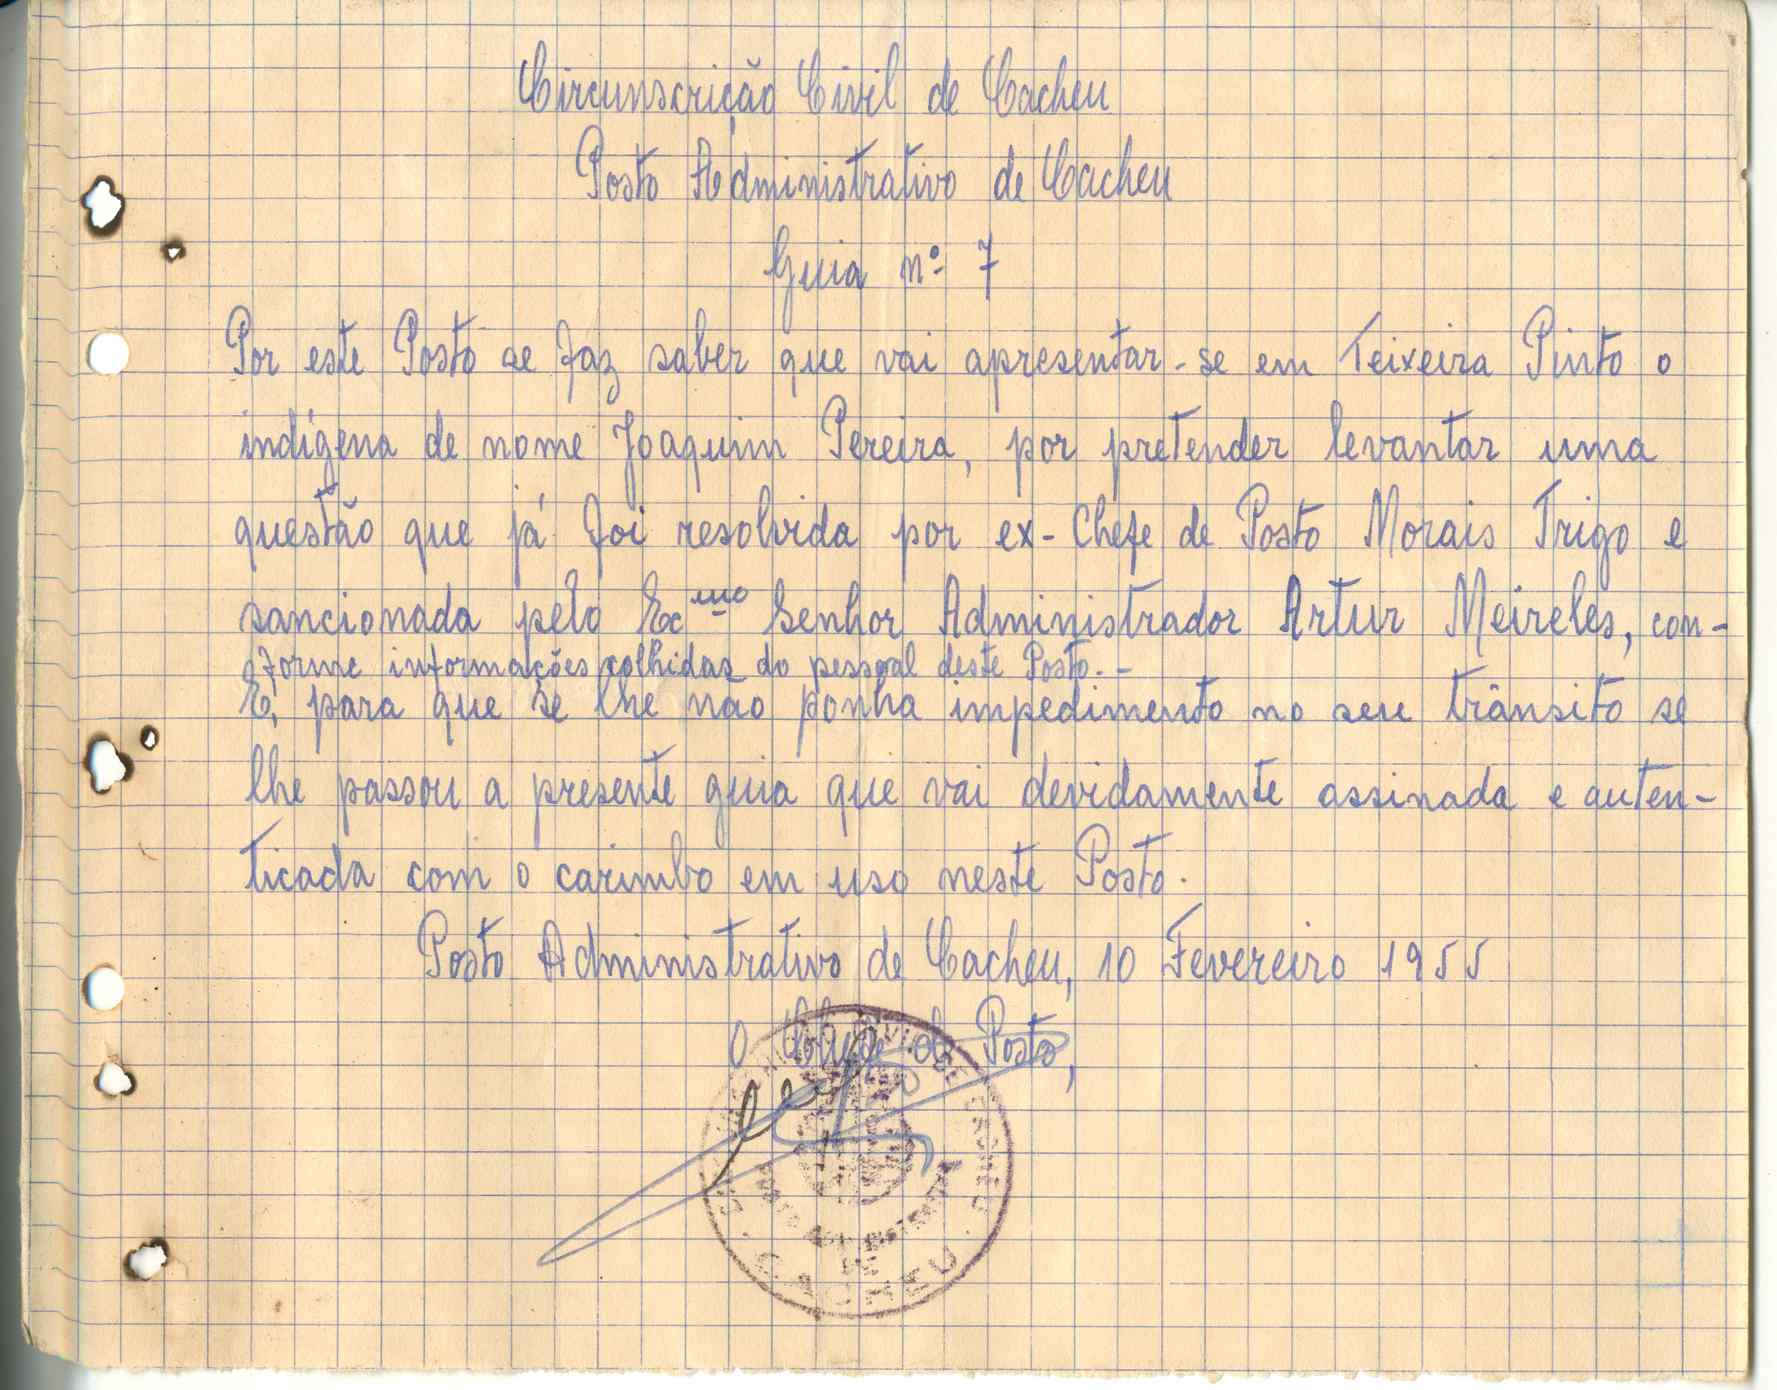 Circunscrição Civil de Cacheu
Posto Administrativo de Cacheu
Guia nº 7
Por este Posto se faz saber que vai apresentar-se em Teixeira Pinto o
indígena de nome Joaquim Pereira, por pretender levantar uma
questão que já foi resolvida por ex-Chefe de Posto Morais Trigo e
sancionada pelo Exmo Senhor Administrador Artur Meireles, con-
forme informações colhidas do pessoal deste Posto.-
E, para que se lhe não ponha impedimento no seu trânsito se
lhe passou a presente guia que vai devidamente assinada e auten-
ticada com o carimbo em uso neste Posto.
Posto Administrativo de Cacheu, 10 Fevereiro 1955
O Chefe de Posto,
CACHEU